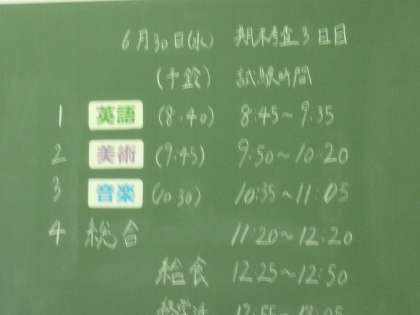 6月30日(水) 期末考査3日目
(予鈴) 試験時間
1 英語 (8:40) 8:45~9:35
2 美術 (9:45) 9:50~10:20
3 音楽 (10:30) 10:35~11:05
4 総合 11:20~12:20
給食 12:25~12:50